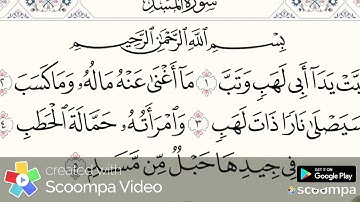 سورة المسد
بِسْمِ ٱللَّهِ ٱلرَّحْمَٰنِ ٱلرَّحِيمِ
تَبَّتْ يَدَآ أَبِى لَهَبٍ وَتَبَّ ١ مَآ أَغْنَىٰ عَنْهُ مَالُهُۥ وَمَا كَسَبَ
سَيَصْلَىٰ نَارًا ذَاتَ لَهَبٍ ٣ وَٱمْرَأَتُهُۥ حَمَّالَةَ ٱلْحَطَبِ ٤
فِى جِيدِهَا حَبْلٌ مِّن مَّسَدٍ
created with
Scoompa Video
GET IT ON
Google Play
scoompa